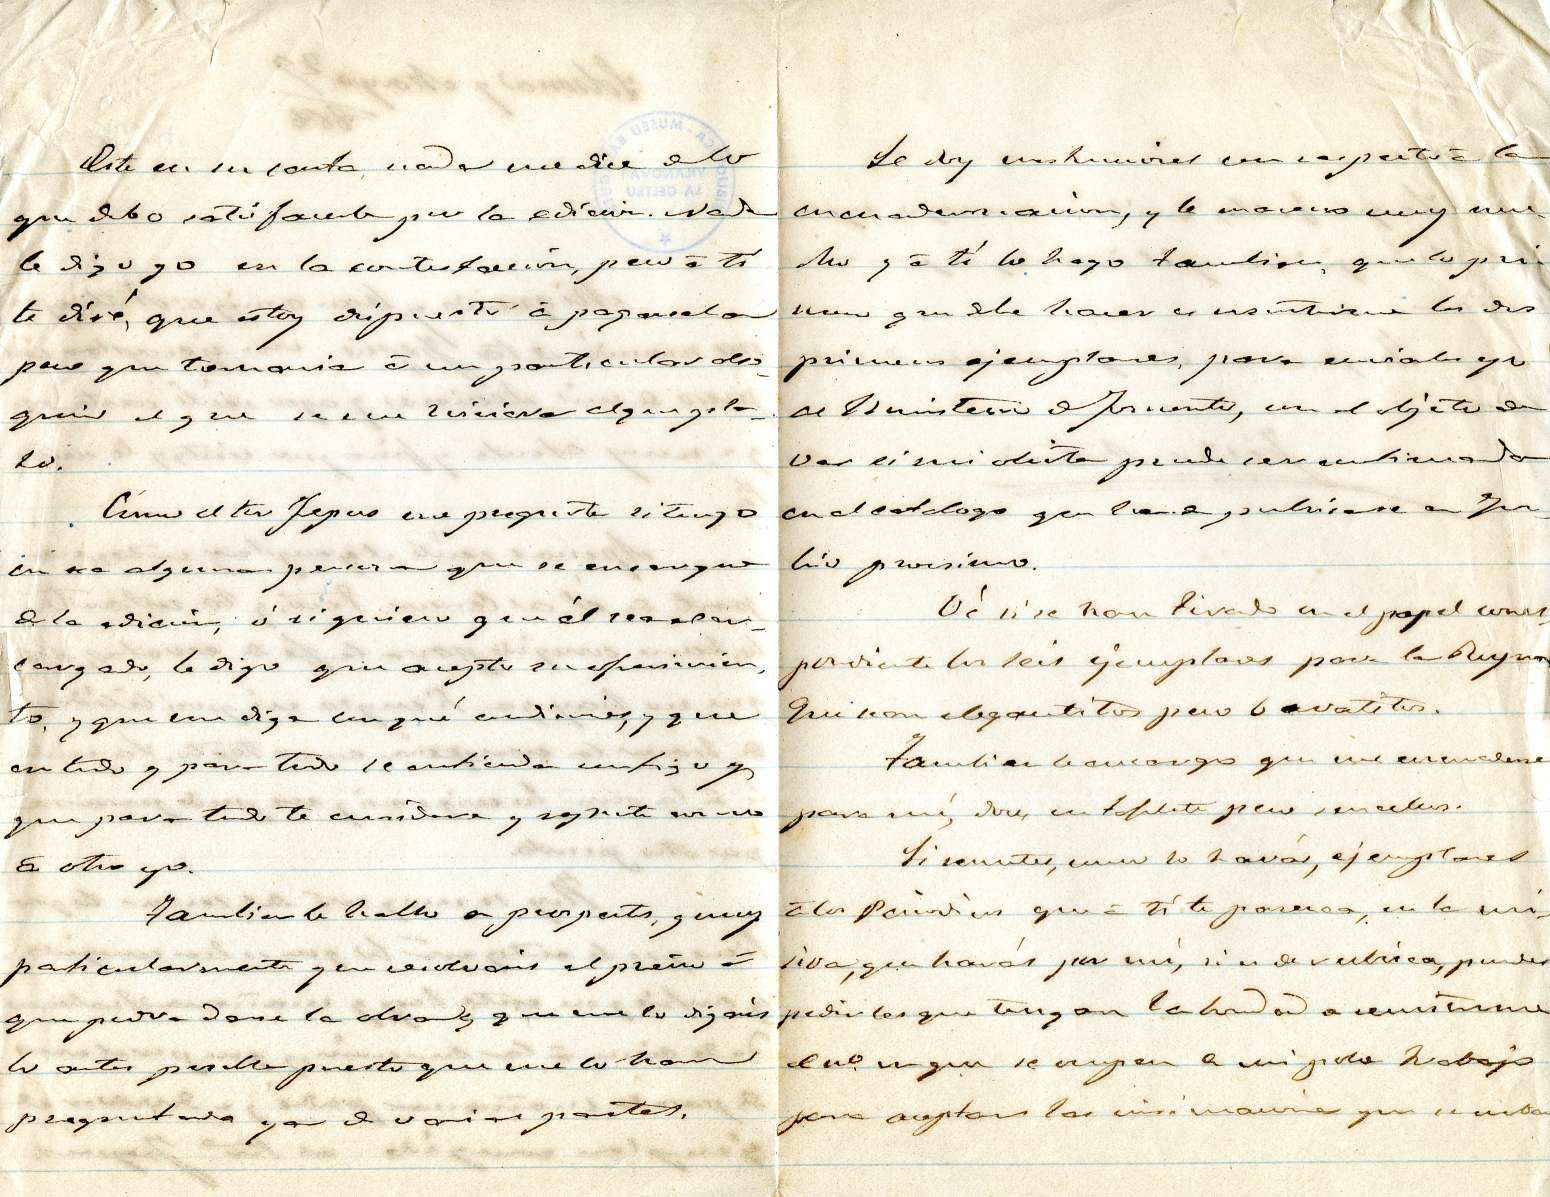 Este en su carta nada me dice de lo
que debo satisfacerle por la edicion. Nada
le digo yo en la contestación, pero á tí
te diré, que estoy dispuesto á pagarsela
pero que tomaria á un particular obse-
quio el que se me hiciera algun pla-
zo.
Cómo el tío Jepus me pregunta si tengo
en esa alguna persona que se encargue
de la edición, ó si quiero que él sea el en-
cargado, le digo que acepto su ofrecimien-
to, y que me diga en qué condiciones, y que
en todo y para todo se entienda contigo y
que para todo te considere y respete como
á otro yo.
Tambien le hablo en prospecto, y muy
particularmente que resolvais el precio á
que podrá darse la obra, y que me lo digais
lo antes posible puesto que me lo han
preguntado ya de varias partes.
Le doy instrucciones con respecto á la
encuadernacion, y le encarezco muy mu-
cho y á tí lo hago tambien, que lo pri
mero que debe hacer es remitirme los dos
primeros ejemplares, para enviarlos yo
al Ministerio de Fomento, con el objeto de
ver si mi obrita puede ser continuada
en el catálogo que ha de publicarse en Ju-
lio proximo.
Vé si se han tirado en el papel corres-
pondiente los seis ejemplares para la Reyna
Que sean elegantitos pero baratitos.
Tambien le encargo que me encuaderne
para mí, dos, en tafilete pero sencillos.
Si remites, como lo harás, ejemplares
á los Periodicos que á tí te parezca, en la mi-
siva, que harás por mí, si es de rubrica, puedes
pedirles que tengan la bondad de remitirme
el nº. en que se ocupen de mi pobre trabajo
para aceptar las